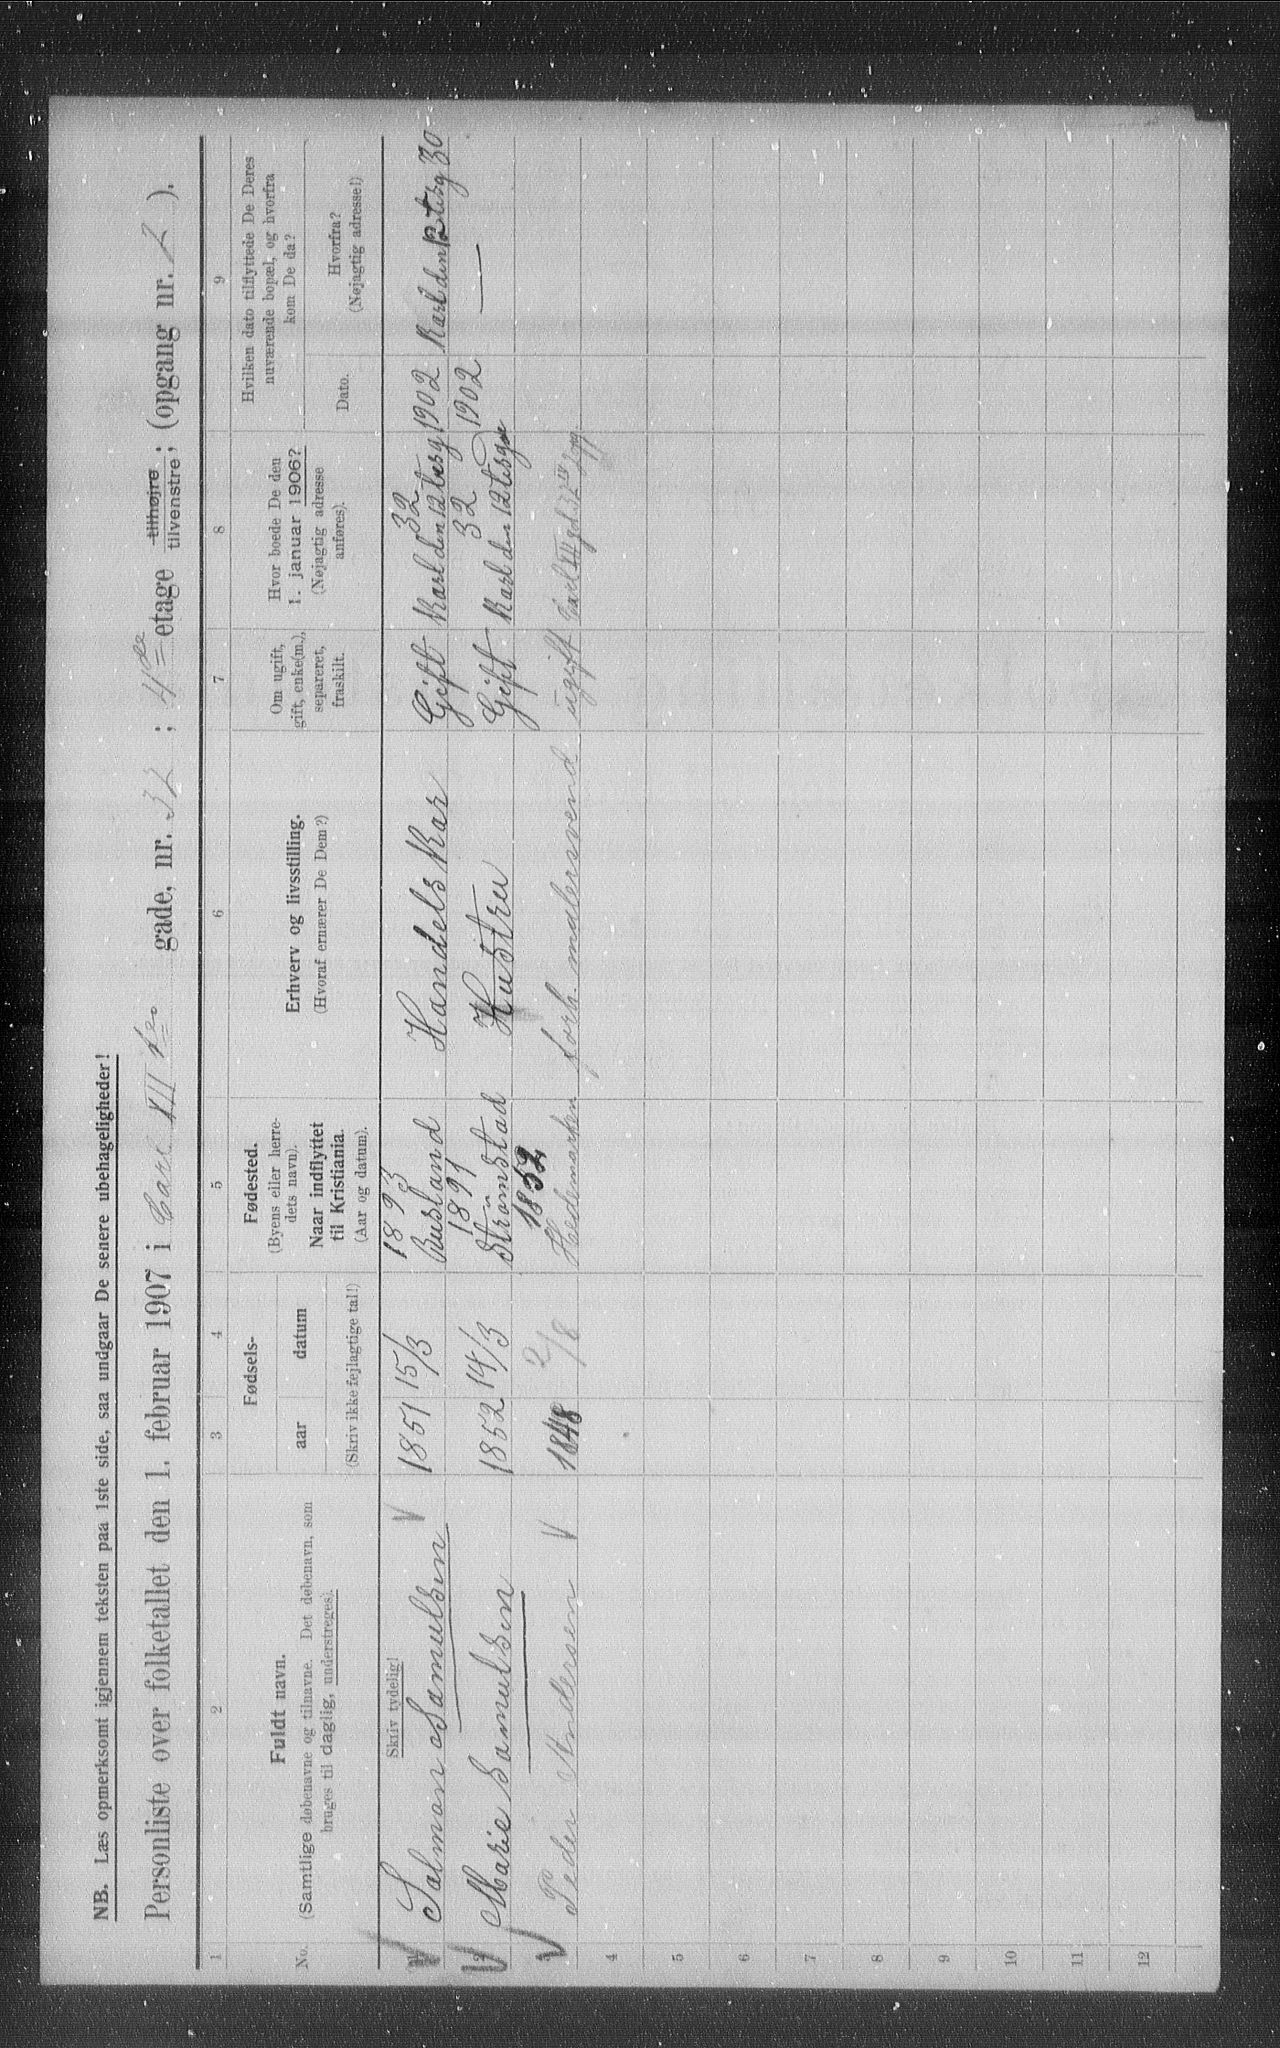 NB. Læs opmerksomt igjennem teksten paa 1ste side, saa undgaar De senere ubehageligheder!
Personliste over folketallet den 1. februar 1907 i Carl XII tes gade, nr. 32; 4de etage tilhøjre tilvenstre; (opgang nr. 2).
1 2 3 4 5 6 7 8 9
No.
Fuldt navn.
(Samtlige døbenavne og tilnavne. Det døbenavn, som
bruges til daglig, understreges).
Fødsels-
aar datum
(Skriv ikke fejlagtige tal!)
Fødested.
(Byens eller herre-
dets navn).
Naar indflyttet
til Kristiania.
(Aar og datum).
Erhverv og livsstilling.
(Hvoraf ernærer De Dem?)
Om ugift,
gift, enke(m.),
separeret,
fraskilt.
Hvor boede De den
1. januar 1906?
(Nøjagtig adresse
anføres).
Hvilken dato tilflyttede De Deres
nuværende bopæl, og hvorfra
kom De da?
Dato.
Hvorfra?
(Nøjagtig adresse!)
Skriv tydelig!
1893 32
Salman Samulsen V 1851 15/3 Rusland Handels Kar Gift Karl den 12 tesg 1902 Karl den 12 tesg 30
1891 32
Marie Samulsen 1852 14/3 Strömstad Hustru Gift Karl den 12 tesga 1902 —
1852
Peder Andersen V 1848 2/8 Hedemarken forh. malersvend ugift
4
5
6
7
8
9
10
11
12